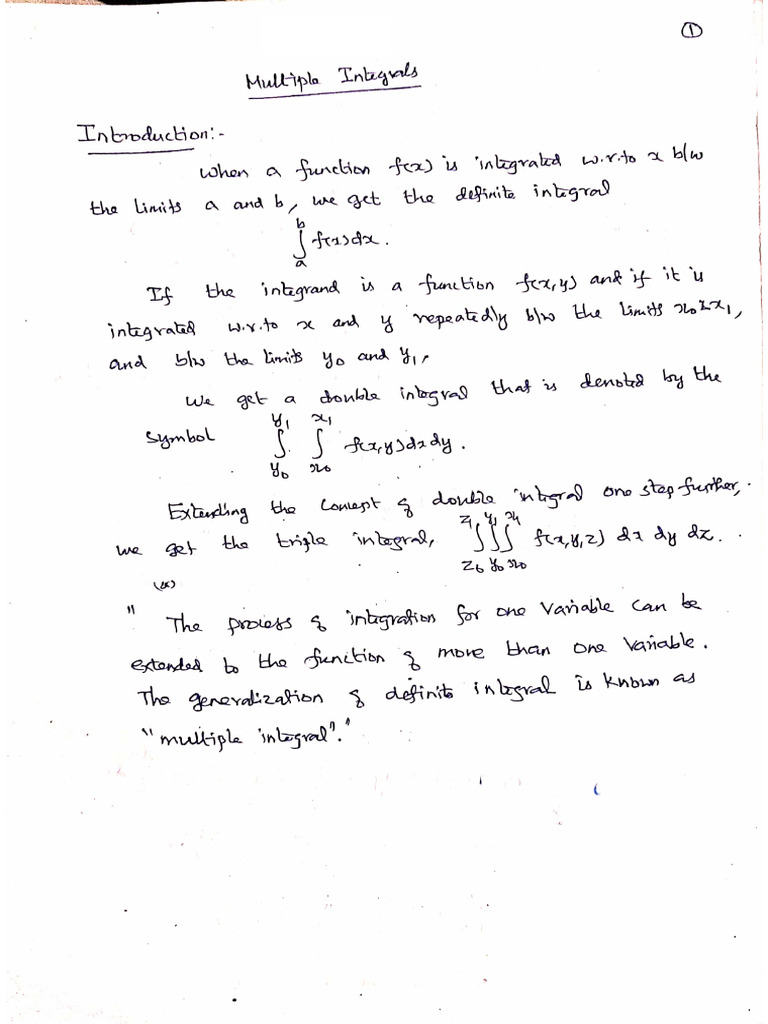 ①
Multiple Integrals
Introduction:-
When a function f(x) is integrated w.r.to x b/w
the limits a and b, we get the definite integral
∫_a^b f(x)dx.
If the integrand is a function f(x,y) and if it is
integrated w.r.to x and y repeatedly b/w the limits x₀ & x₁,
and b/w the limits y₀ and y₁,
We get a double integral that is denoted by the
symbol ∫_{y₀}^{y₁} ∫_{x₀}^{x₁} f(x,y)dx dy.
Extending the concept of double integral one step further,
we get the triple integral, ∫_{z₀}^{z₁} ∫_{y₀}^{y₁} ∫_{x₀}^{x₁} f(x,y,z) dx dy dz.
(or)
" The process of integration for one variable can be
extended to the function of more than one variable.
The generalization of definite integral is known as
"multiple integral"."